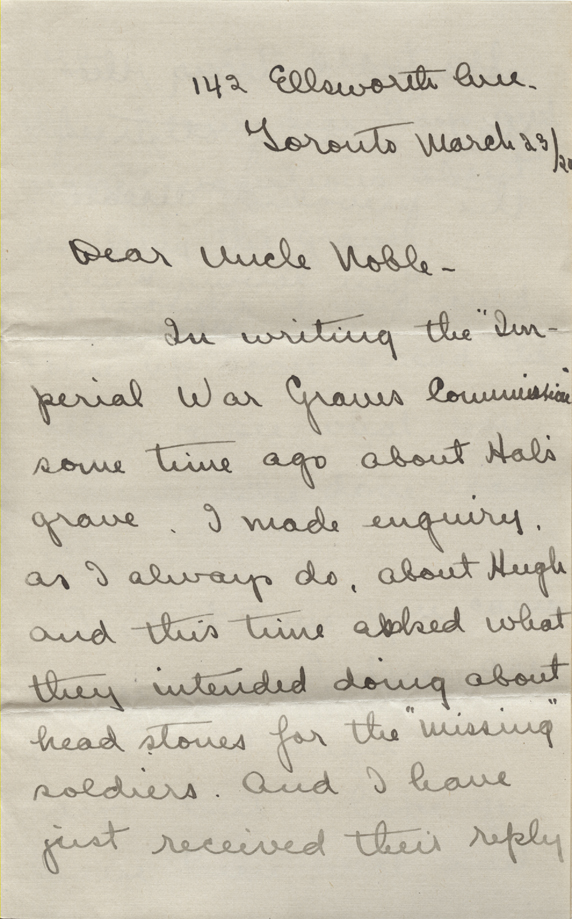 142 Ellsworth Ave.
Toronto March 23/20
Dear Uncle Noble -
In writing the "Im-
perial War Graves Commission"
some time ago about Hal's
grave. I made enquiry,
as I always do, about Hugh
and this time asked what
they intended doing about
head stones for the "missing"
soldiers. And I have
just received their reply